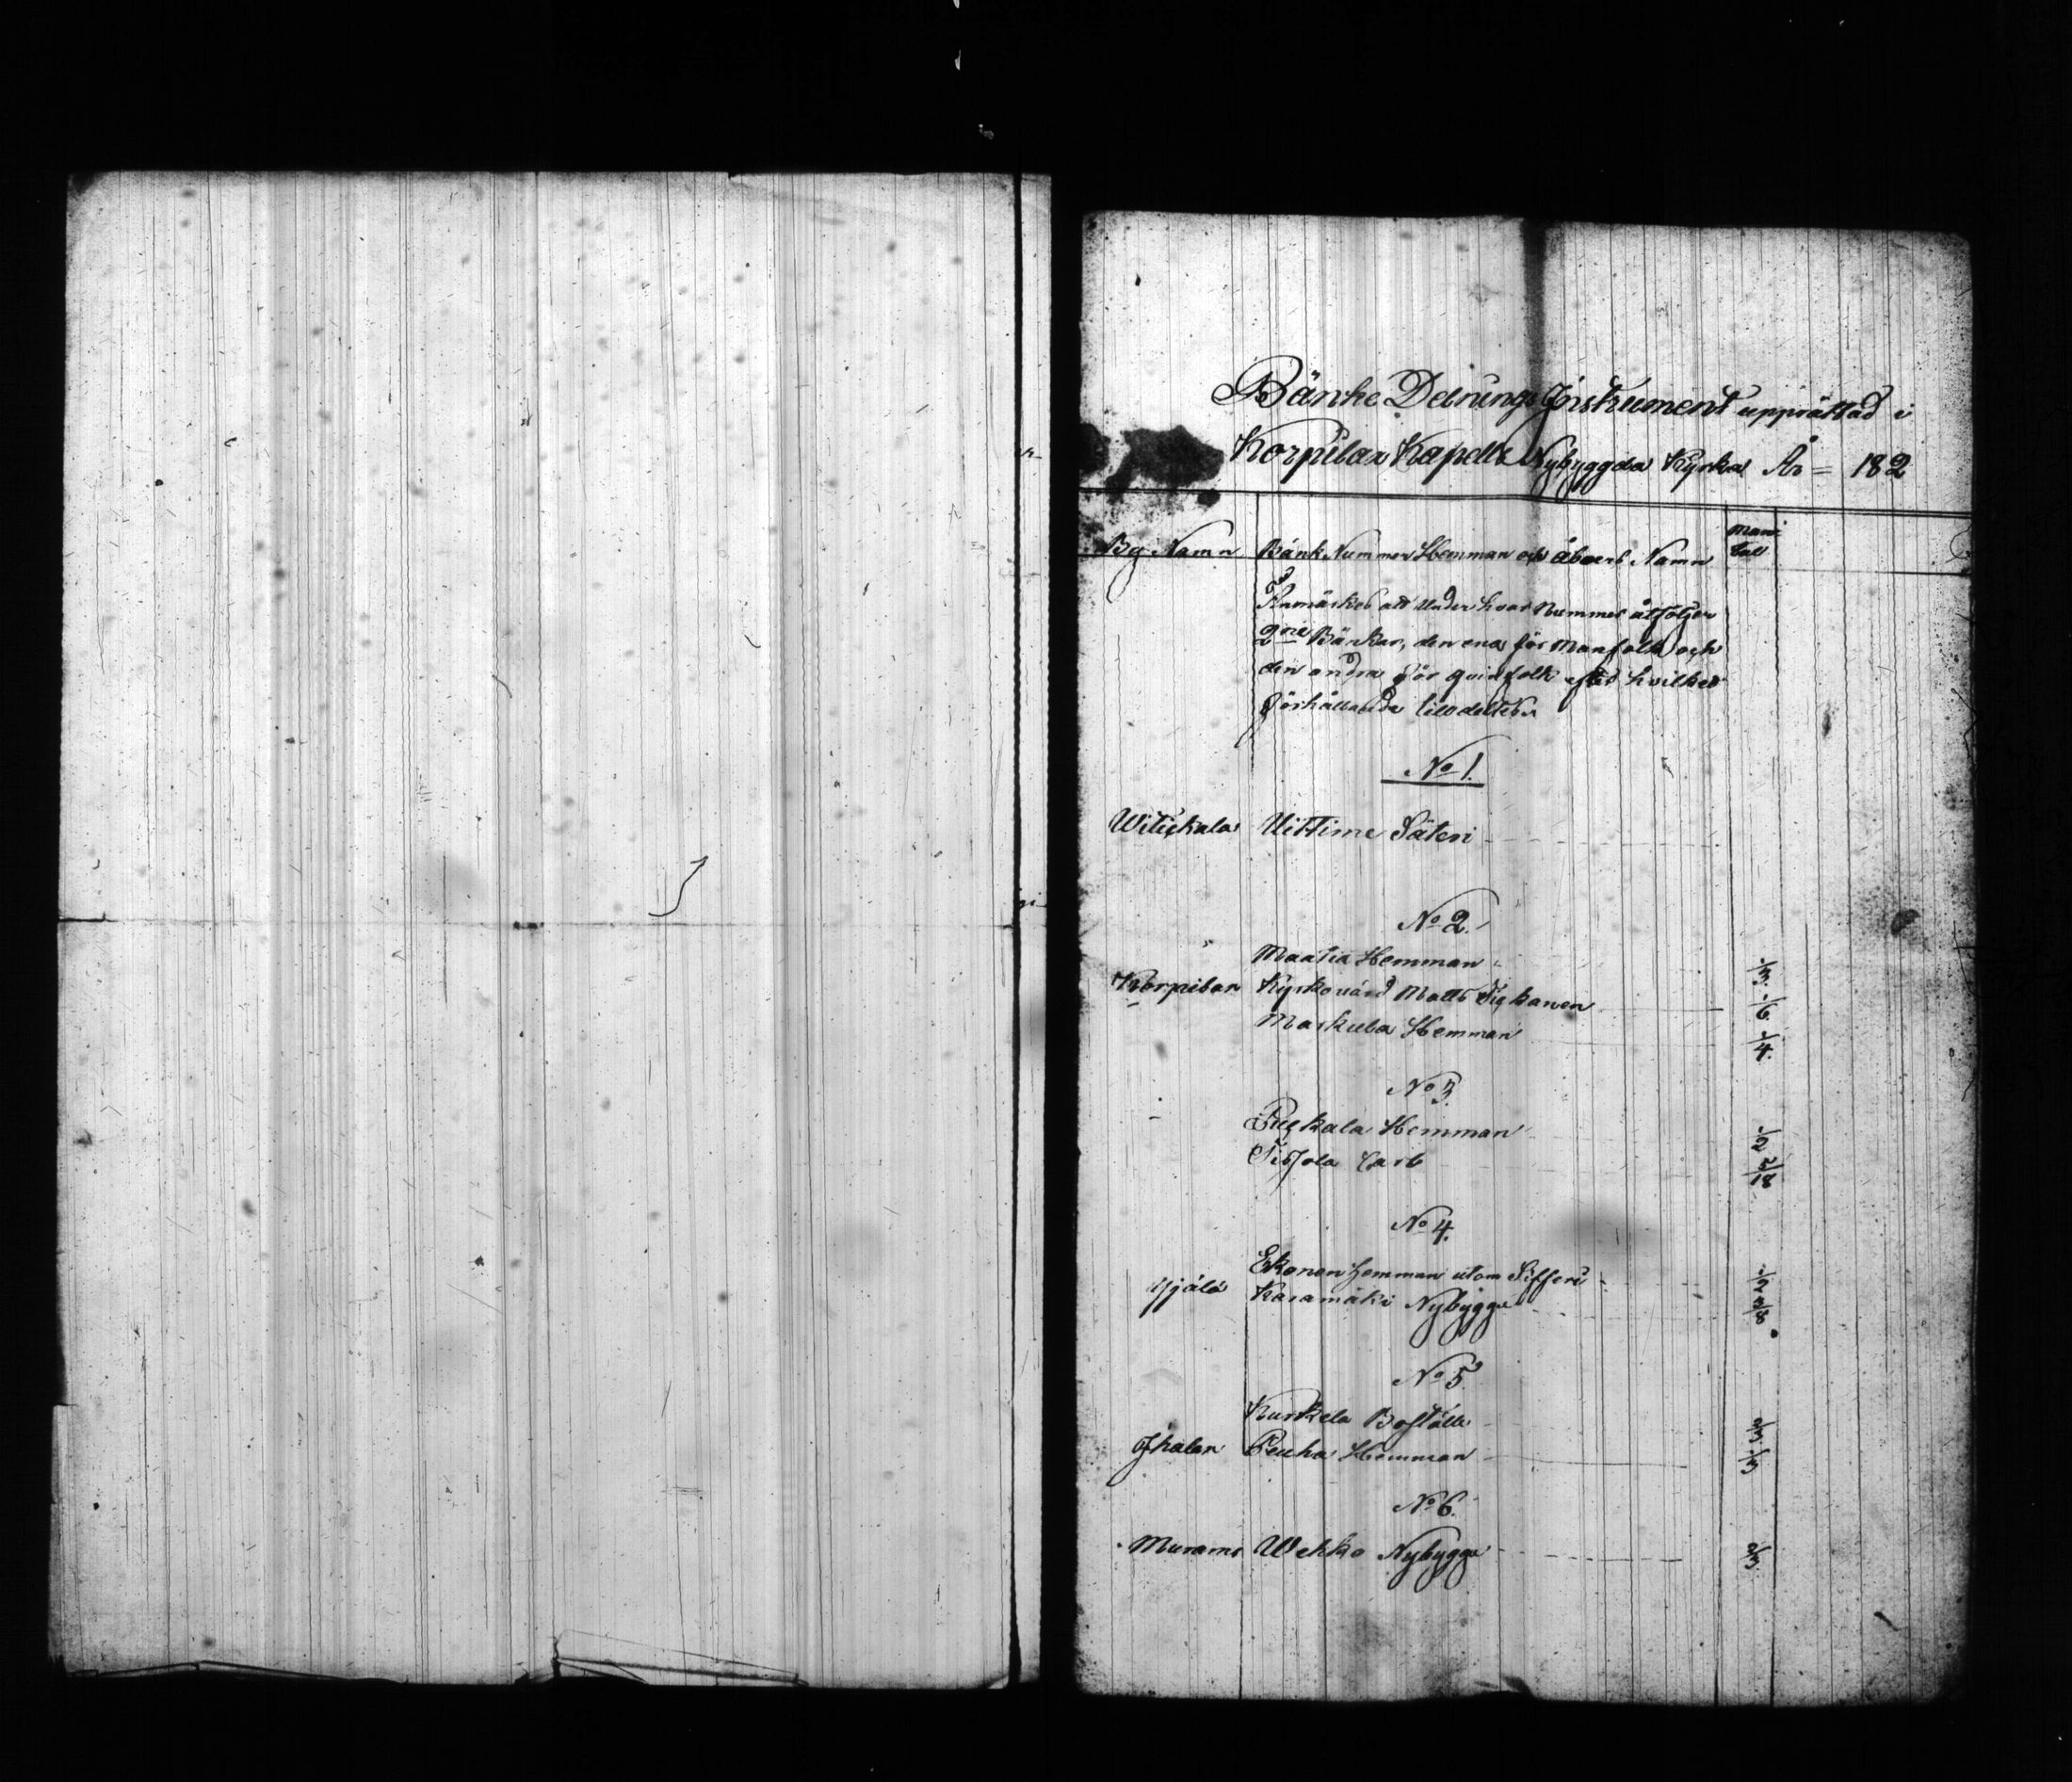 Bänke Delnings Instrument upprättad i
Korpilax Kapells Nybyggda Kyrka År = 182
By Namn Bänk Nummer Hemman och Åboers Namn Man tal
Anmärkes att under hvar Nummer åtföljer
2ne Bänkar, den ena för Manfolk och
den andra för qvinfolk efter hvilket
förhållande tilldeltes
No 1.
Witickala Uittime Säteri
No 2.
Maatia Hemman 1/3.
Korpilax Kyrkovärd Matts 1/6.
Markula Hemman 1/4.
No 3.
Puckala Hemman 1/2
Tissola Carl
No 4.
Ekonen Hemman utom Sifferi
Karamäki Nybygge
No 5.
Kurkela Boställe
Ihalax Peuha Hemman
No 6.
Murame Wehko Nybygge 2/3